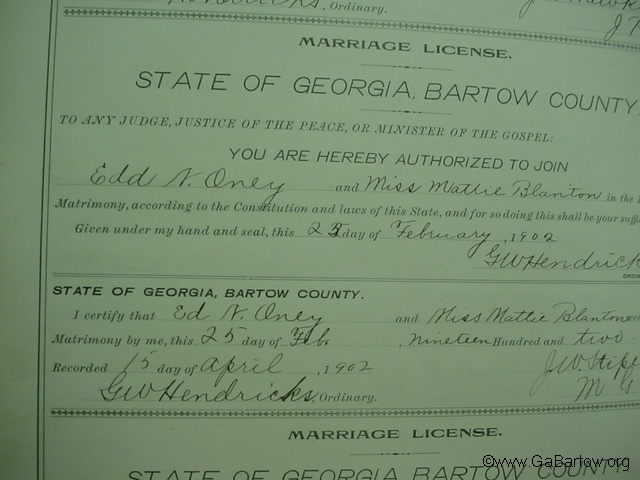 , Ordinary.
MARRIAGE LICENSE.
STATE OF GEORGIA, BARTOW COUNTY.
TO ANY JUDGE, JUSTICE OF THE PEACE, OR MINISTER OF THE GOSPEL:
YOU ARE HEREBY AUTHORIZED TO JOIN
Edd N. Oney and Miss Mattie Blanton in the
Matrimony, according to the Constitution and laws of this State, and for so doing this shall be your
Given under my hand and seal, this 23 day of February, 1902
GWHendrick
STATE OF GEORGIA, BARTOW COUNTY.
I certify that Ed N. Oney and Miss Mattie Blanton
Matrimony by me, this 25 day of Feb., nineteen Hundred and two.
Recorded 15 day of April, 1902 J.W. 
GWHendricks, Ordinary. M G
MARRIAGE LICENSE.
STATE OF GEORGIA, BARTOW COUNTY
©www.GaBartow.org